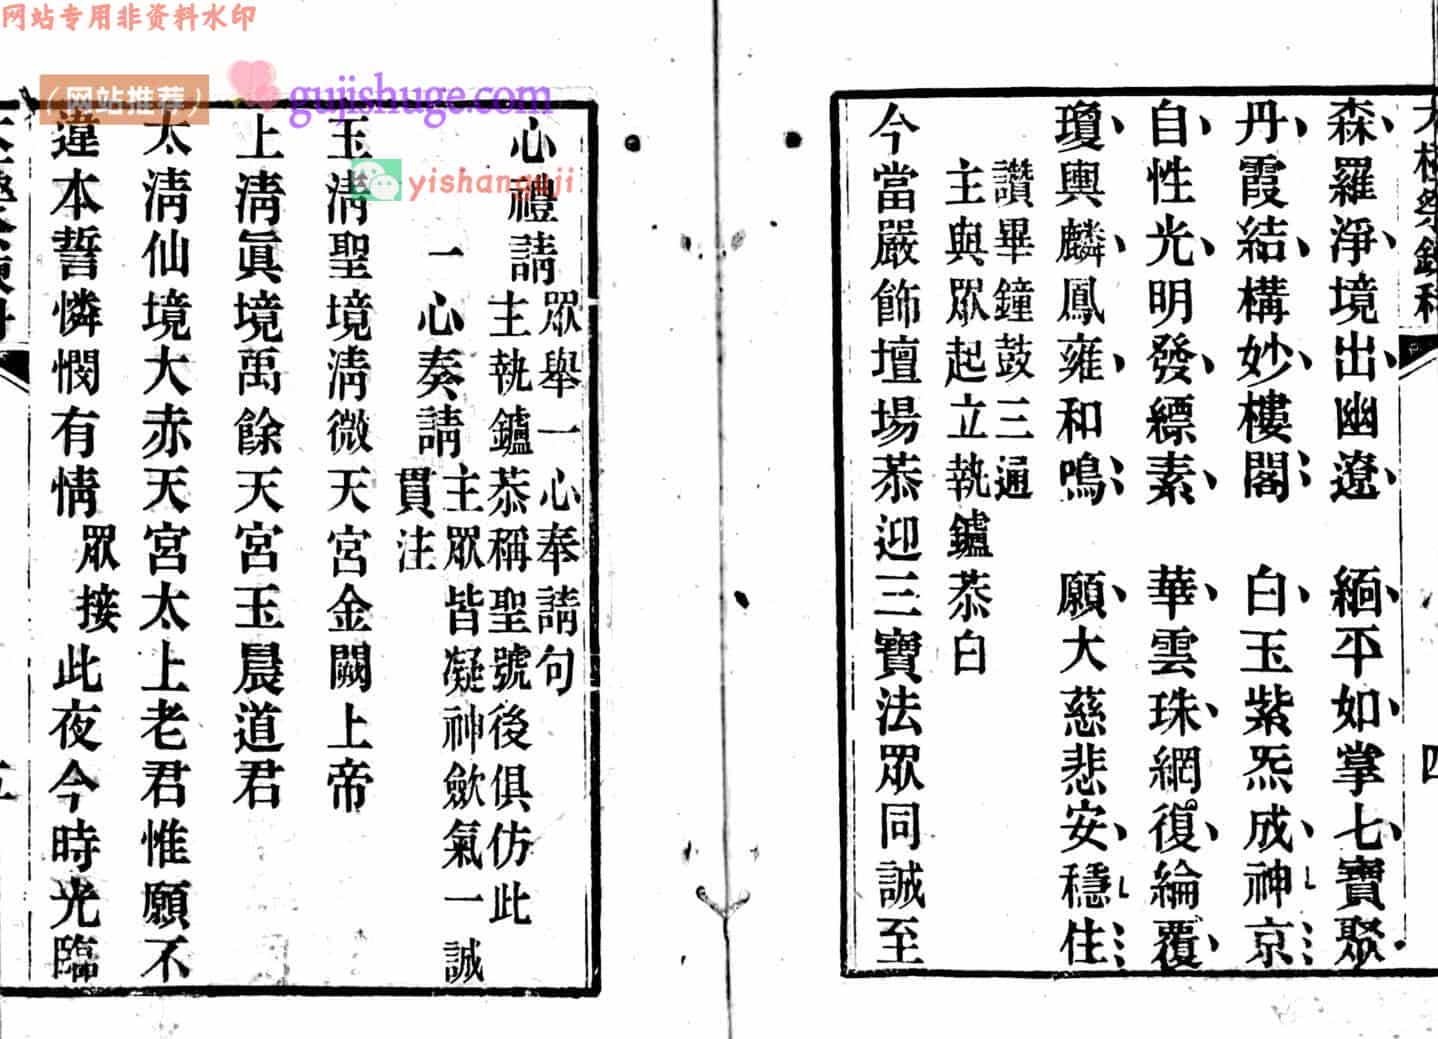 网站专用非资料水印
(网站推荐)
gujishuge.com
yishanguji
四
森羅淨境出幽遼 緬平如掌七寶聚
丹霞結構妙樓閣 白玉紫炁成神京
自性光明發縹素 華雲珠網復綸覆
瓊輿麟鳳雍和鳴 願大慈悲安穩住
讚畢鐘鼓三通
主與眾起立執鑪恭白
今當嚴飾壇場恭迎三寶法眾同誠至
心禮請
眾舉一心奉請句
主執鑪恭稱聖號後俱仿此
一心奏請
主眾皆凝神歛氣一誠
貫注
玉清聖境清微天宮金闕上帝
上清眞境禹餘天宮玉晨道君
太清仙境大赤天宮太上老君惟願不
違本誓憐憫有情
眾接
此夜今時光臨
五